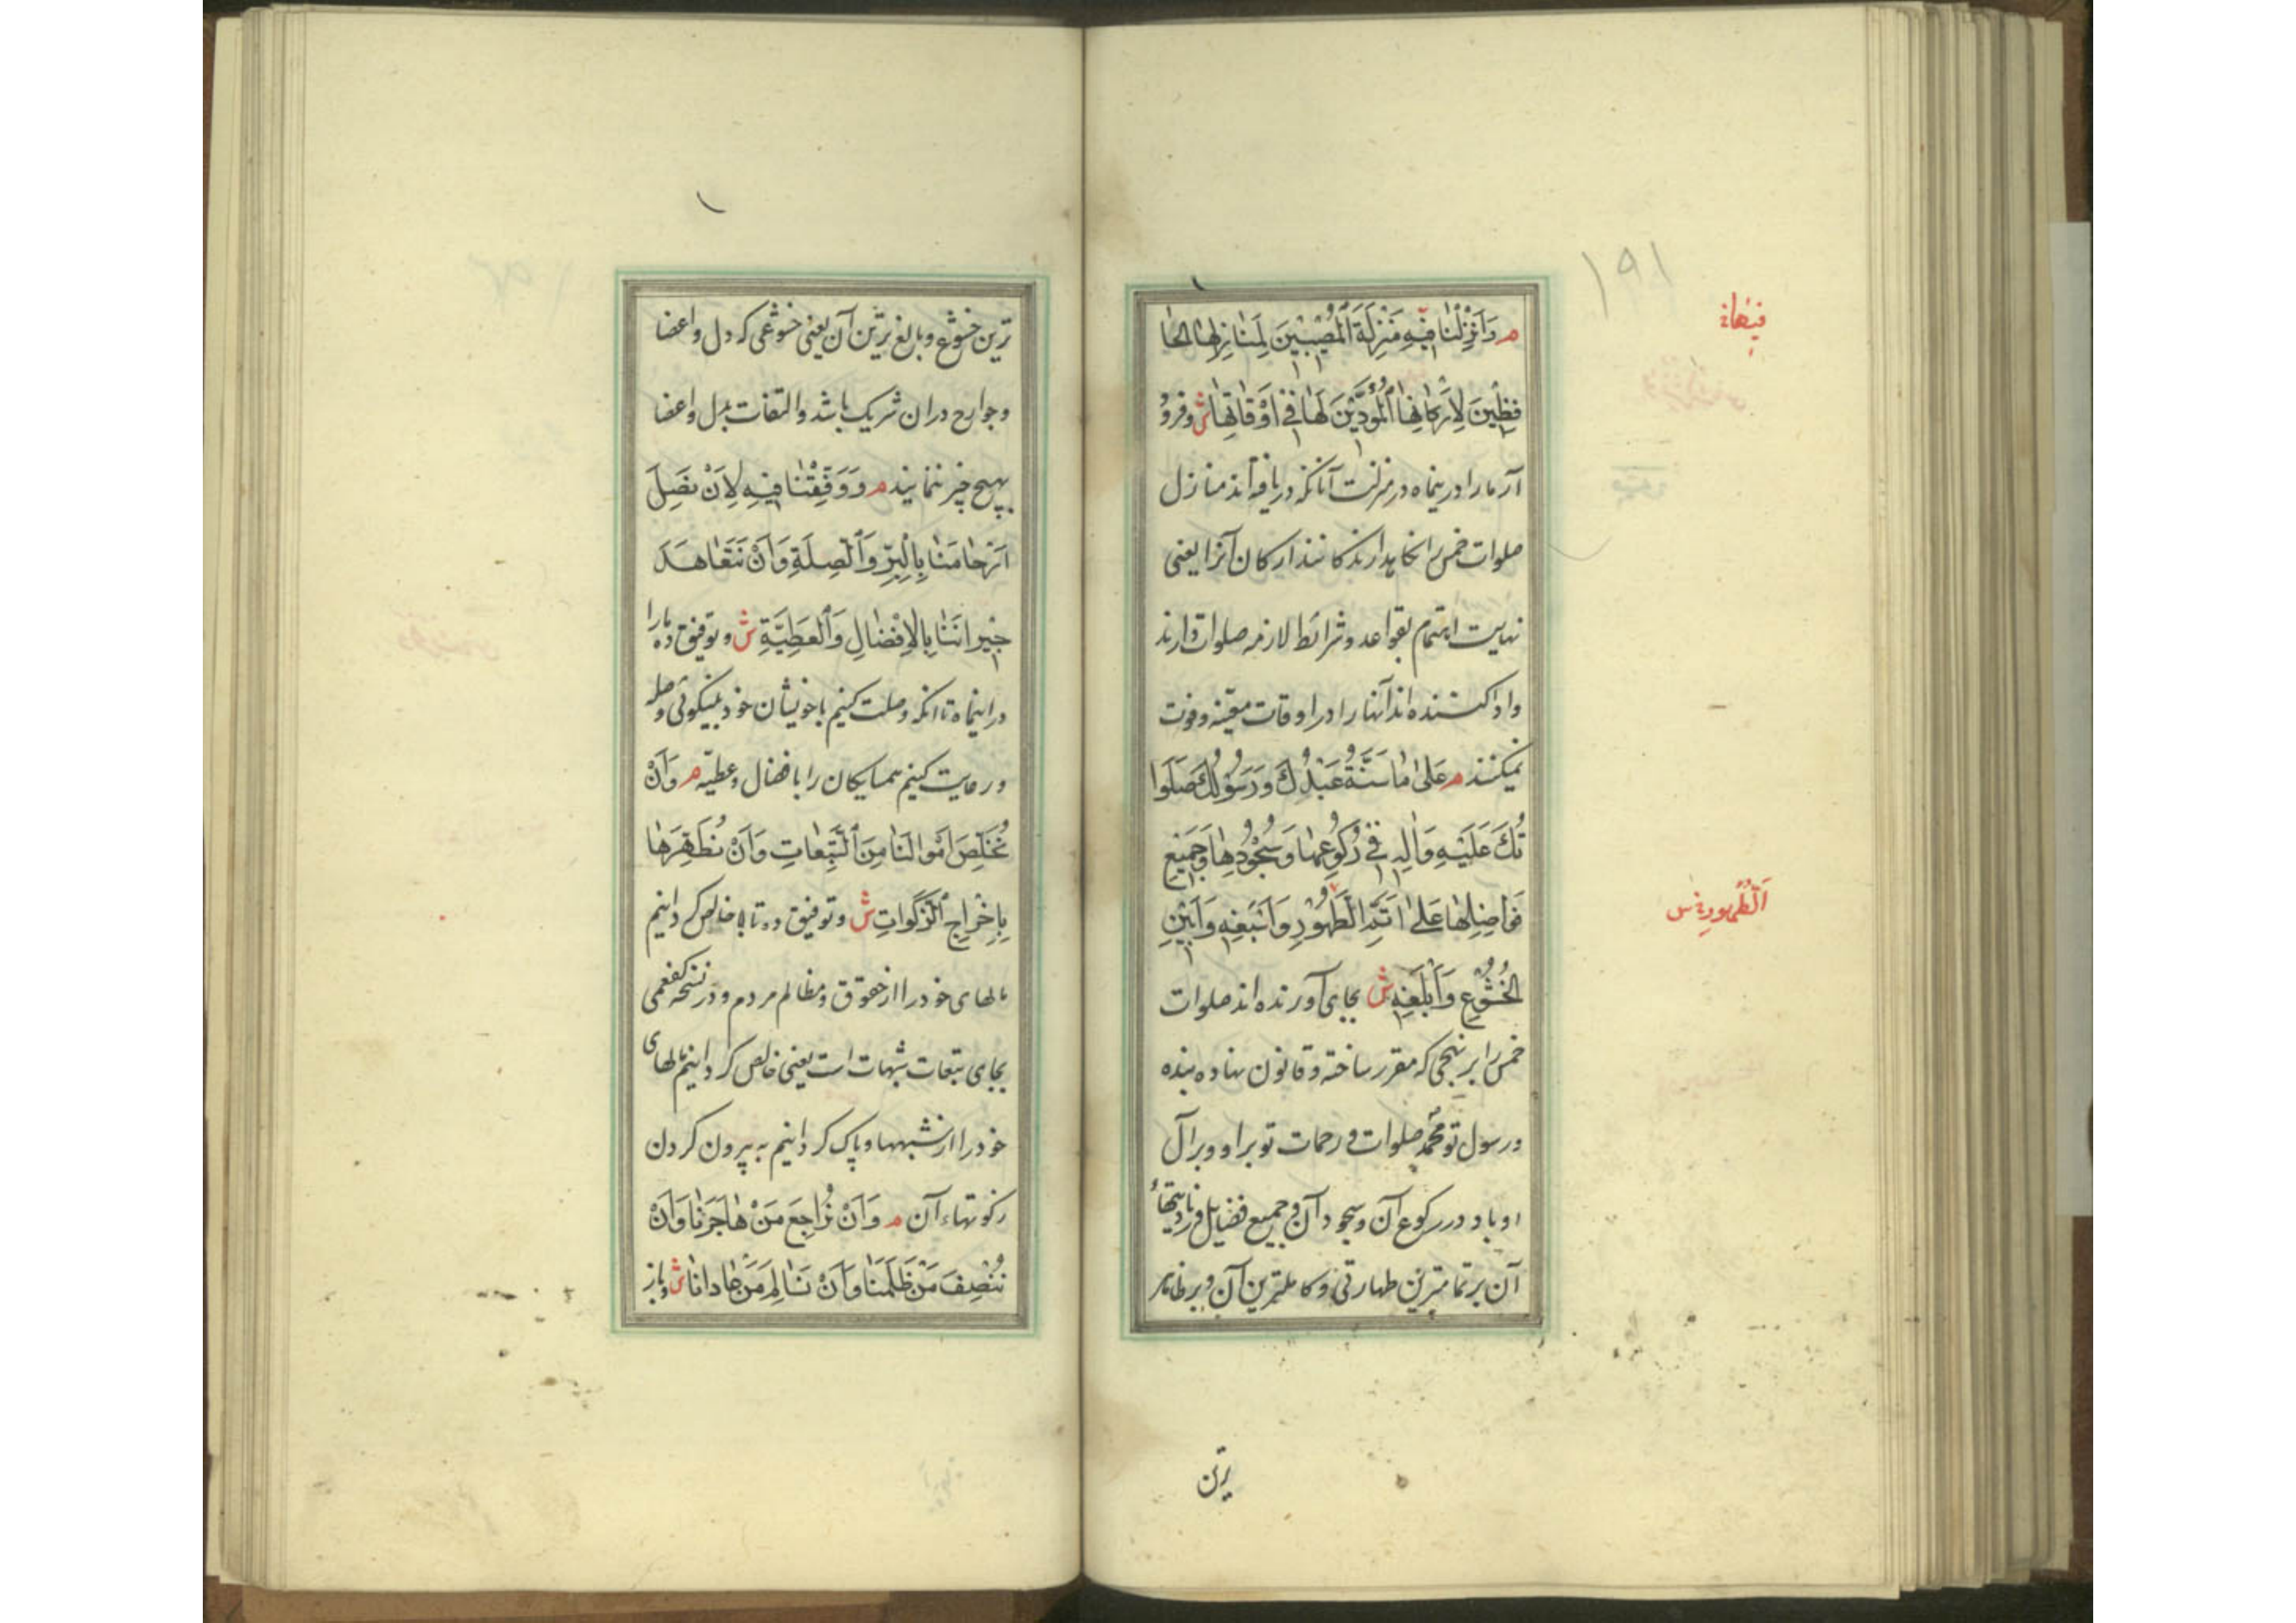 ۱۹۱
فیهاخ
م وَاَنْزِلْنا فیهِ مَنْزِلَةَ الْمُصیبینَ لِمَنازِلِهَا الحا
فِظینَ لِاَرْکانِهَا الْمُؤَدّینَ لَها فی اَوْقاتِها ش وفرود
آر ما را درینماه در منزلت آنانکه دریافته‌اند منازل
صلوات خمس را نگاهدارندکانند ارکان آنرا یعنی
نهایت اهتمام بقواعد و شرائط لازمه صلوات دارند
و ادا کننده‌اند آنها را در اوقات معینه و فوت
نمیکنند م عَلی ما سَنَّهُ عَبْدُكَ وَرَسُولُكَ صَلَوا
تُكَ عَلَیْهِ وَالِهِ فی رُکُوعِها وَسُجُودِها وَجَمیعِ
فَواضِلِها عَلی اَتَمِّ الطَّهُورِ وَاَسْبَغِهِ وَاَبْیَنِ
اَلطُّهُورِخ س
الْخُشُوعِ وَاَبْلَغِهِ ش بجای آورنده‌اند صلوات
خمس را بر نهجی که مقرر ساخته و قانون نهاده بنده
و رسول تو محمّد صلوات و رحمات تو بر او و بر آل
او باد در رکوع آن و سجود آن و جمیع فضایل و زیادتیهاء
آن بر تمامترین طهارتی و کاملترین آن و بر ظاهر
ترین
ترین خشوع و بالغ‌ترین آن یعنی خشوعی که دل و اعضا
و جوارح در ان شریک باشد و التفات بدل و اعضا
بهیچ چیز ننمایند م وَوَفِّقْنا فیهِ لِاَنْ نَصِلَ
اَرْحامَنا بِالْبِرِّ وَالصِّلَةِ وَاَنْ نَتَعاهَدَ
جیرانَنا بِالْاِفْضالِ وَالْعَطِیَّةِ ش و توفیق ده ما را
در اینماه تا انکه وصلت کنیم با خویشان خود بنیکوئی و صله
و رعایت کنیم همسایکان را با فضال و عطیّه م وَاَنْ
نُخَلِّصَ اَمْوالَنا مِنَ التَّبِعاتِ وَاَنْ نُطَهِّرَها
بِاِخْراجِ الزَّکَواتِ ش و توفیق ده تا خالص کردانیم
مالهای خود را از حقوق و مظالم مردم و در نسخه کفعمی
بجای تبعات شبهات است یعنی خالص کردانیم مالهای
خود را از شبهها و پاک کردانیم به بیرون کردن
زکوتهاء آن م وَاَنْ نُراجِعَ مَنْ هاجَرَنا وَاَنْ
نُنْصِفَ مَنْ ظَلَمَنا وَاَنْ نُسالِمَ مَنْ عادانا ش و باز